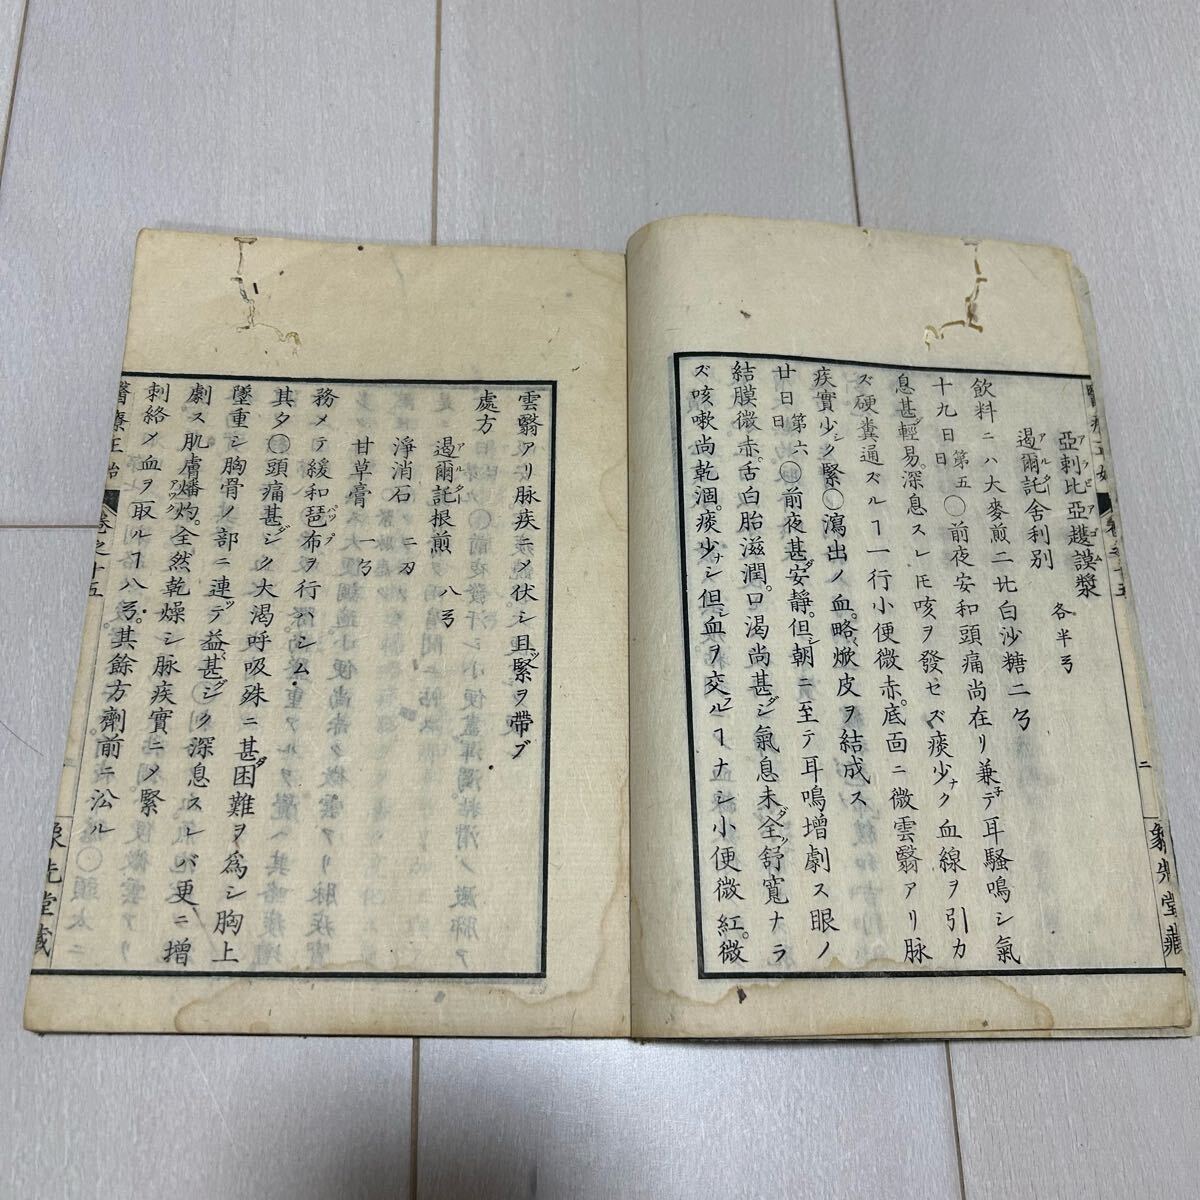 亞剌比亞護謨漿
遏爾託舍利別 各半ㄢ
飲料ニハ大麥煎二比白沙糖二ㄢ
十九日 第五日 ○前夜安和頭痛尚在リ兼テ耳騷鳴シ氣
息甚ダ輕易。深息スレ𪜈咳ヲ發セズ痰少ナク血線ヲ引カ
ズ硬糞通ズルヿ一行小便微赤。底面ニ微雲翳アリ脉
疾實少シク緊○瀉出ノ血。略焮皮ヲ結成ス
廿日 第六日 ○前夜甚ダ安靜。但シ朝ニ至テ耳鳴增劇ス眼ノ
結膜微赤。舌白胎滋潤。口渴尚甚ダシ氣息未ダ全ク舒寬ナラ
ズ咳嗽尚乾涸。痰少ナシ但シ血ヲ交フルヿナシ小便微紅。微
醫療正始 卷之十五 二 象先堂藏
雲翳アリ脉疾ニメ伏シ且ツ緊ヲ帶ブ
處方
遏爾託根煎 八ㄢ
淨消石 二刃
甘草膏 一ㄢ
務メテ緩和琶布ヲ行ハシム
其夕 頭痛甚ダシク大渴呼吸殊ニ甚ダ困難ヲ爲シ胸上
墜重シ胸骨ノ部ニ連ツテ益甚ダシク深息スレバ更ニ增
劇ス肌膚燔灼。全然乾燥シ脉疾實ニメ緊
刺絡メ血ヲ取ルヿ八ㄢ。其餘方劑前ニ沿ル
醫療正始 卷之十五 象先堂藏